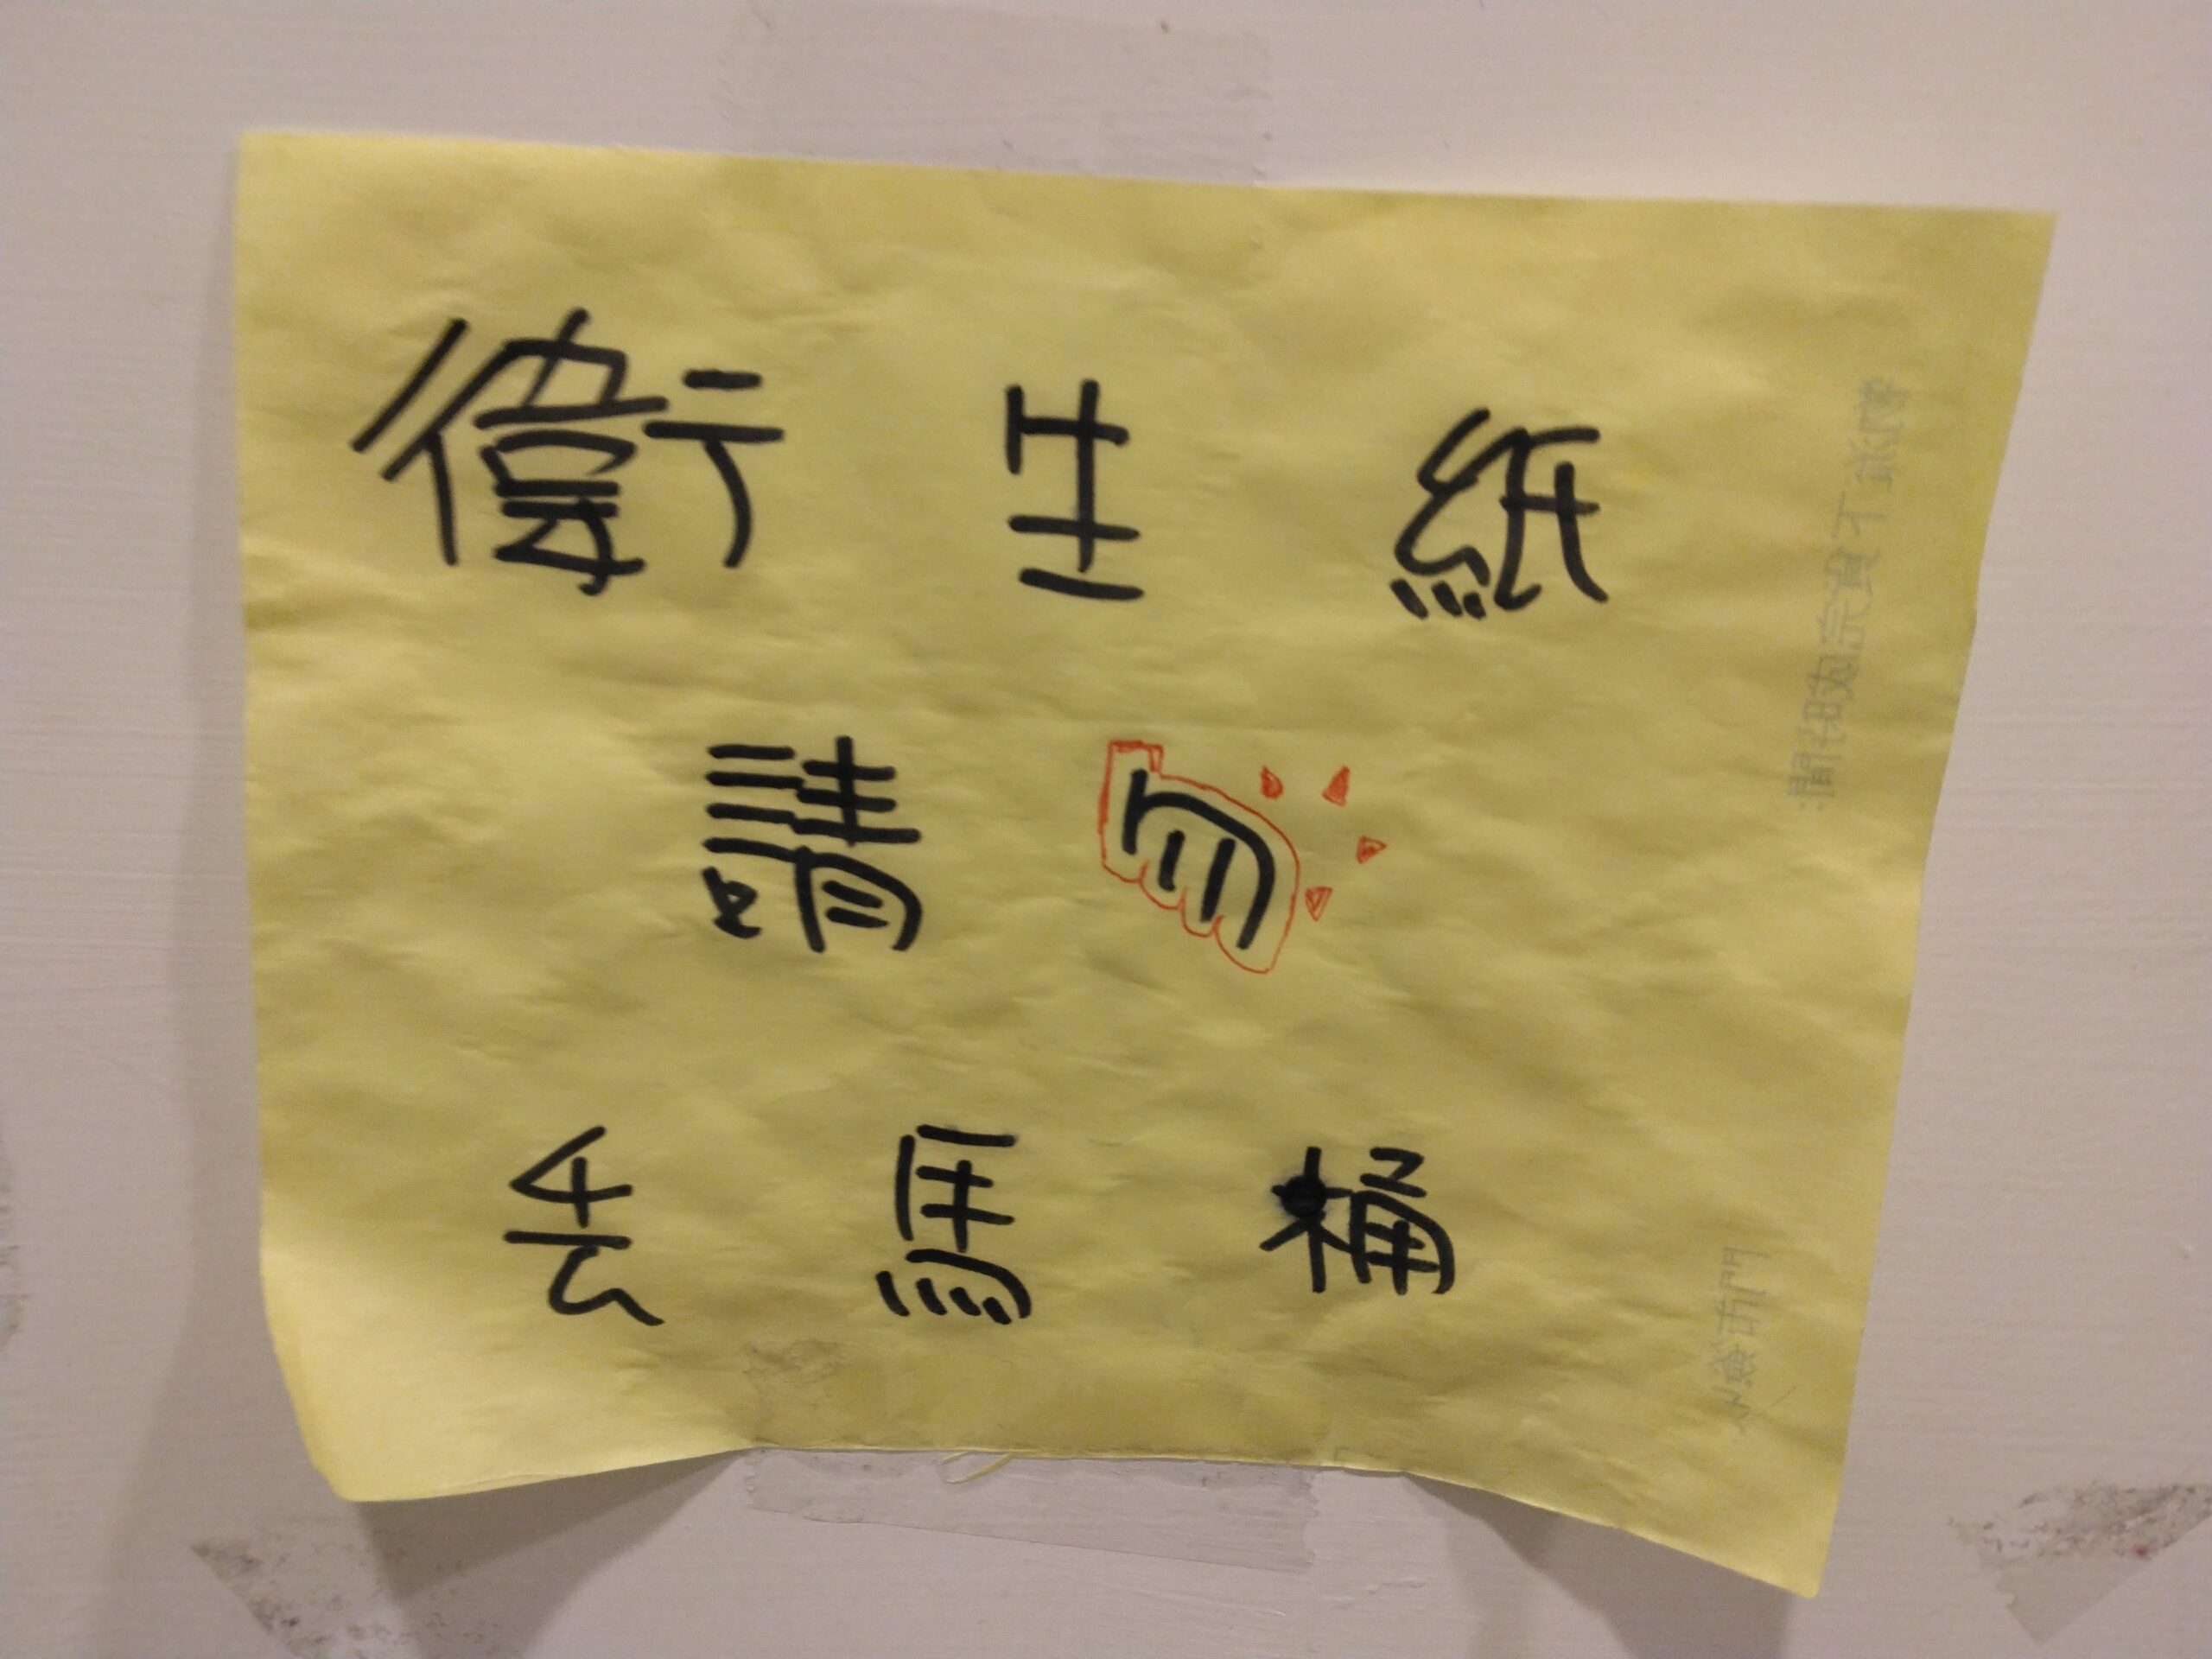 衛生紙
請勿
丟馬桶